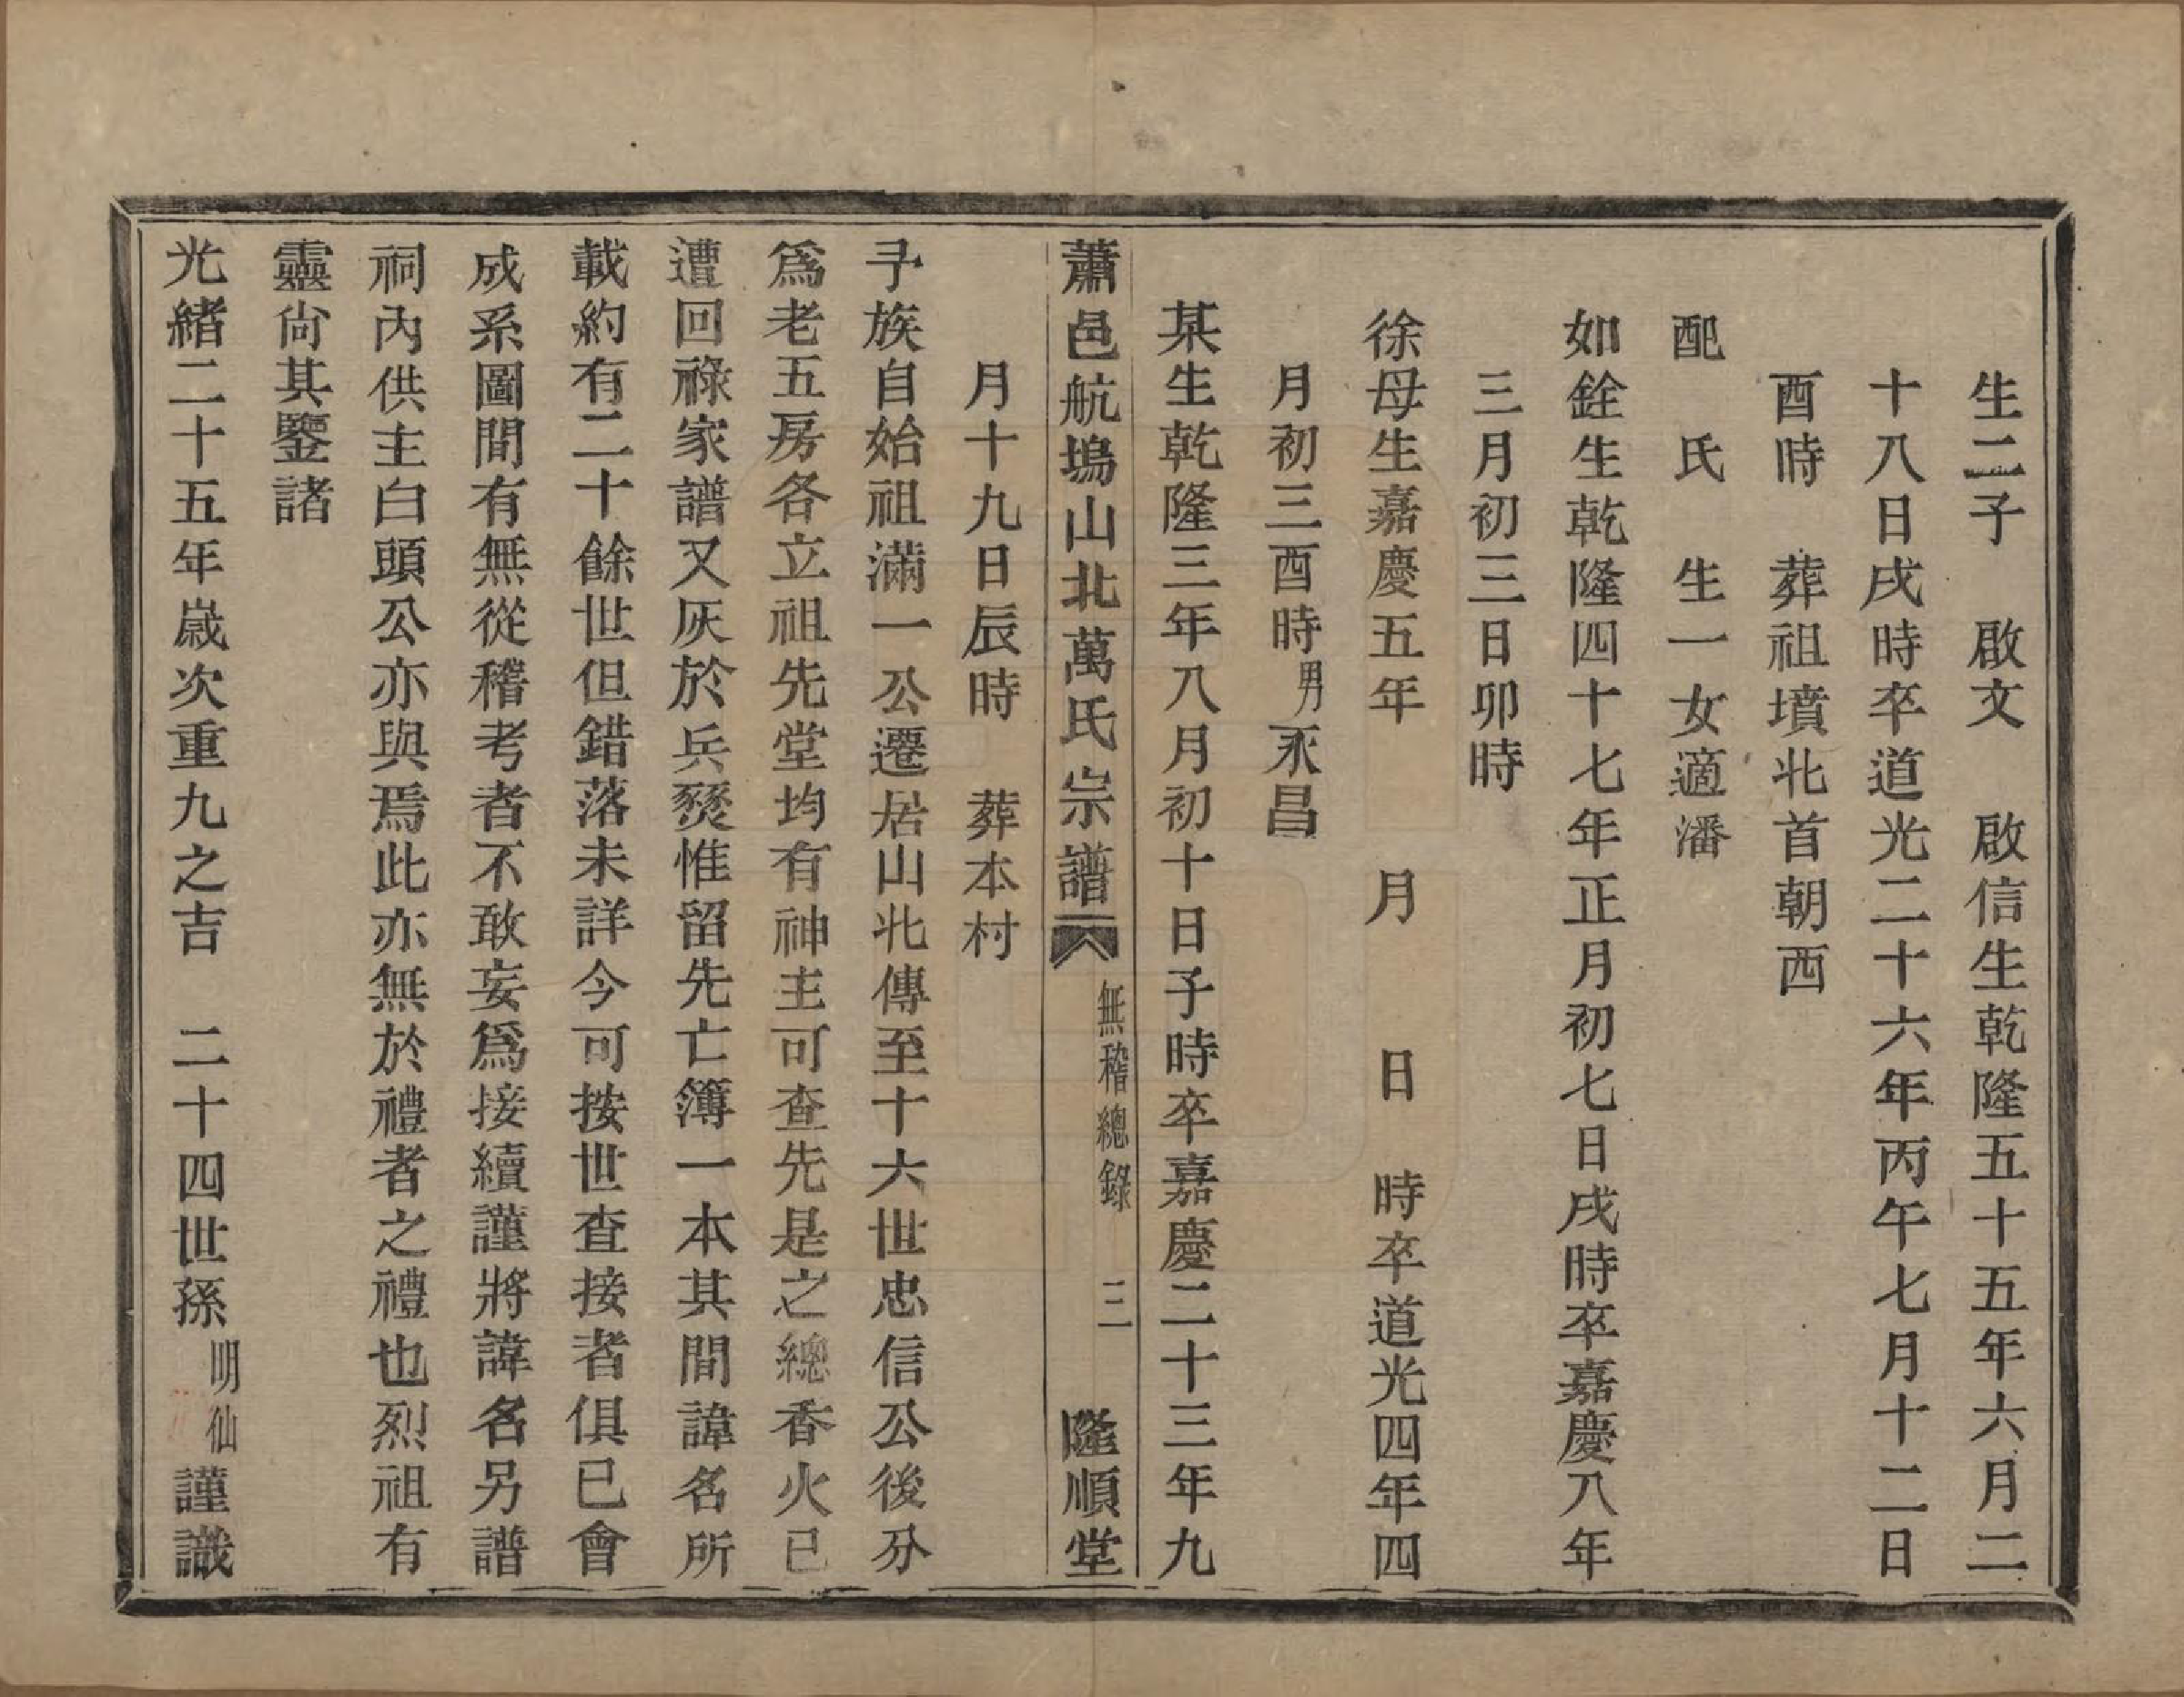 生二子　啟文　啟信生乾隆五十五年六月二
十八日戌時卒道光二十六年丙午七月十二日
酉時　葬祖墳北首朝西
配　氏　生一女適潘
如銓生乾隆四十七年正月初七日戌時卒嘉慶八年
三月初三日卯時
徐母生嘉慶五年　　月　　日　時卒道光四年四
月初三酉時男永昌
某生乾隆三年八月初十日子時卒嘉慶二十三年九
蕭邑航塢山北萬氏宗譜　無稽總錄　三　隆順堂
月十九日辰時　葬本村
予族自始祖滿一公遷居山北傳至十六世忠信公後分
爲老五房各立祖先堂均有神主可查先是之總香火已
遭回祿家譜又灰於兵燹惟留先亡簿一本其間諱名所
載約有二十餘世但錯落未詳今可按世查接者俱已會
成系圖間有無從稽考者不敢妄爲接續謹將諱名另譜
祠內供主白頭公亦與焉此亦無於禮者之禮也烈祖有
靈尙其鑒諸
光緖二十五年歲次重九之吉　二十四世孫明仙謹識